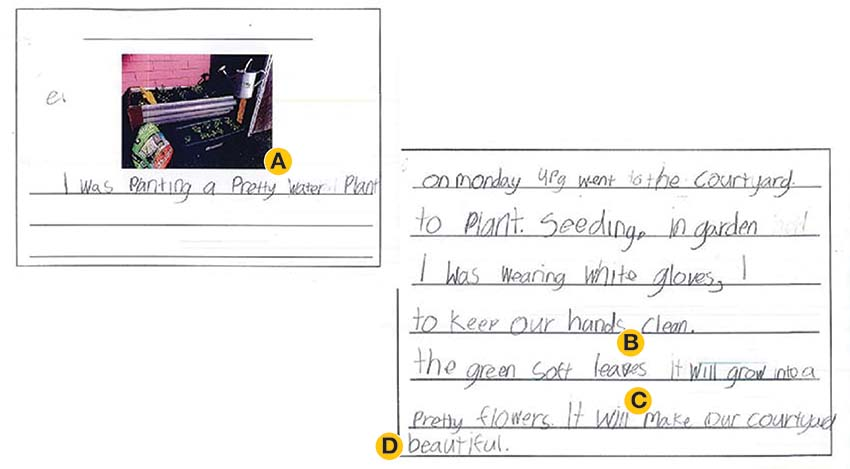 e.
A
I was Planting a Pretty water Plant
on monday 4Pg went to the courtyard.
to Plant. Seeding, in garden bed
I was wearing white gloves, I
to keep our hands clean.
B
the green soft leaves it will grow into a
C
Pretty flowers. It will make our courtyard
D
beautiful.